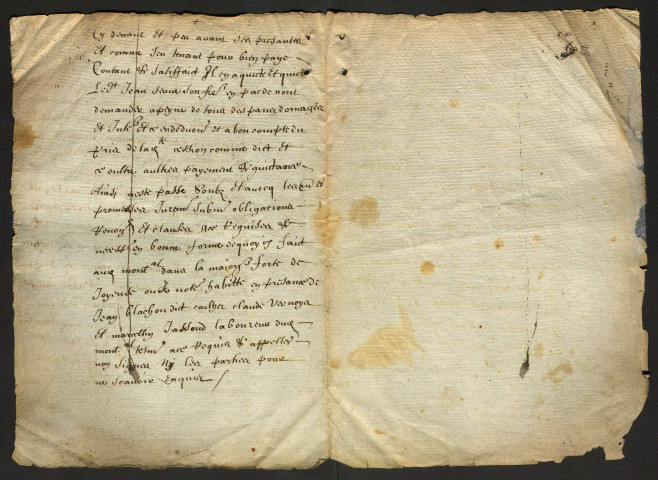 Cy devant et peu avant ses presantes
et comme sen tenant pour bien paye
Contant & satisfaict Il en a quicte et quicte
Led. Jean son fre. en pac de non
demander a peyne de tous despans domages
et Int. et ce en deduon et a bon compte du
Prix de lad. cession comme dict et
ce oultre aultres payement & quictance
Ainsi a este passe soubz et avecq leurs
promesses Jurem. submi. obligacions
Renon. et clauses a ce Requises &
necess. en bonne forme de quoy faict
aud. mont. dans la maison forte de
Joyeuse ou notre. habitte en presance de
Jean blachon dit claude vernoys
et marcelin Jassoud laboureur dud.
mont. tesm. a ce Requis & appelles
non signes Ny les parties pour
ne scavoir Enquis /